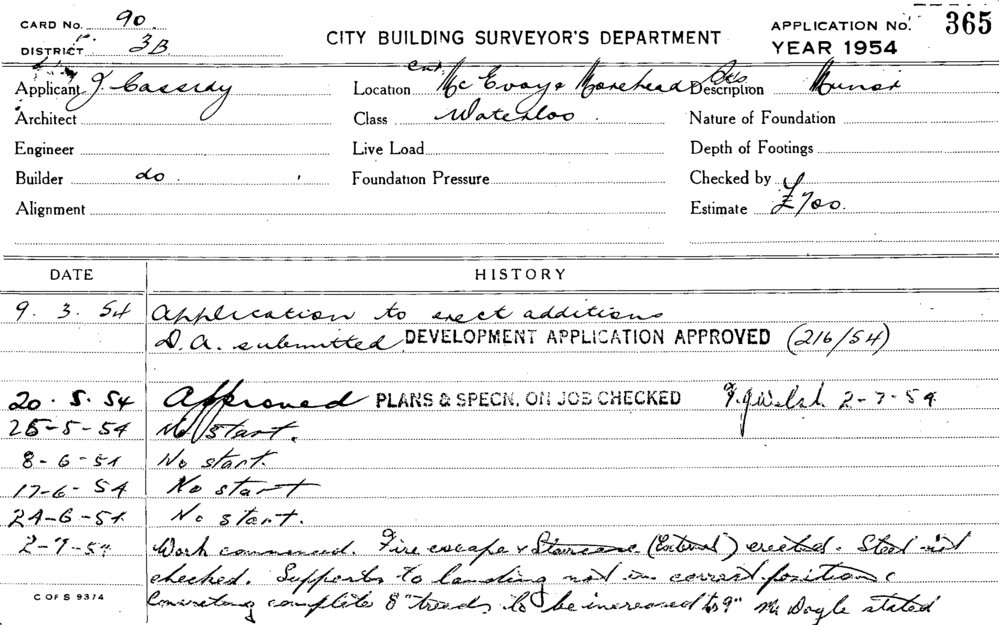 CARD No. 90
DISTRICT 3B
CITY BUILDING SURVEYOR'S DEPARTMENT
APPLICATION No. 365
YEAR 1954
Applicant J. Cassidy
Location Cnr. McEvoy & Morehead Sts
Description Minor
Architect
Class Waterloo
Nature of Foundation
Engineer
Live Load
Depth of Footings
Builder do
Foundation Pressure
Checked by
Alignment
Estimate £700.
DATE HISTORY
9. 3. 54 Application to erect additions
D.A. submitted DEVELOPMENT APPLICATION APPROVED (216/54)
20. 5. 54 Approved PLANS & SPECN. ON JOB CHECKED F.J. Welsh 2-7-54
25-5-54 No start.
8-6-54 No start.
17-6-54 No start
24-6-54 No start.
2-7-54 Work commenced. Fire escape & Staircase (External) erected. Steel not
checked. Supports to landing not in correct position.
Concreting complete 8" treads to be increased to 9" Mr Doyle stated
C OF S 9374